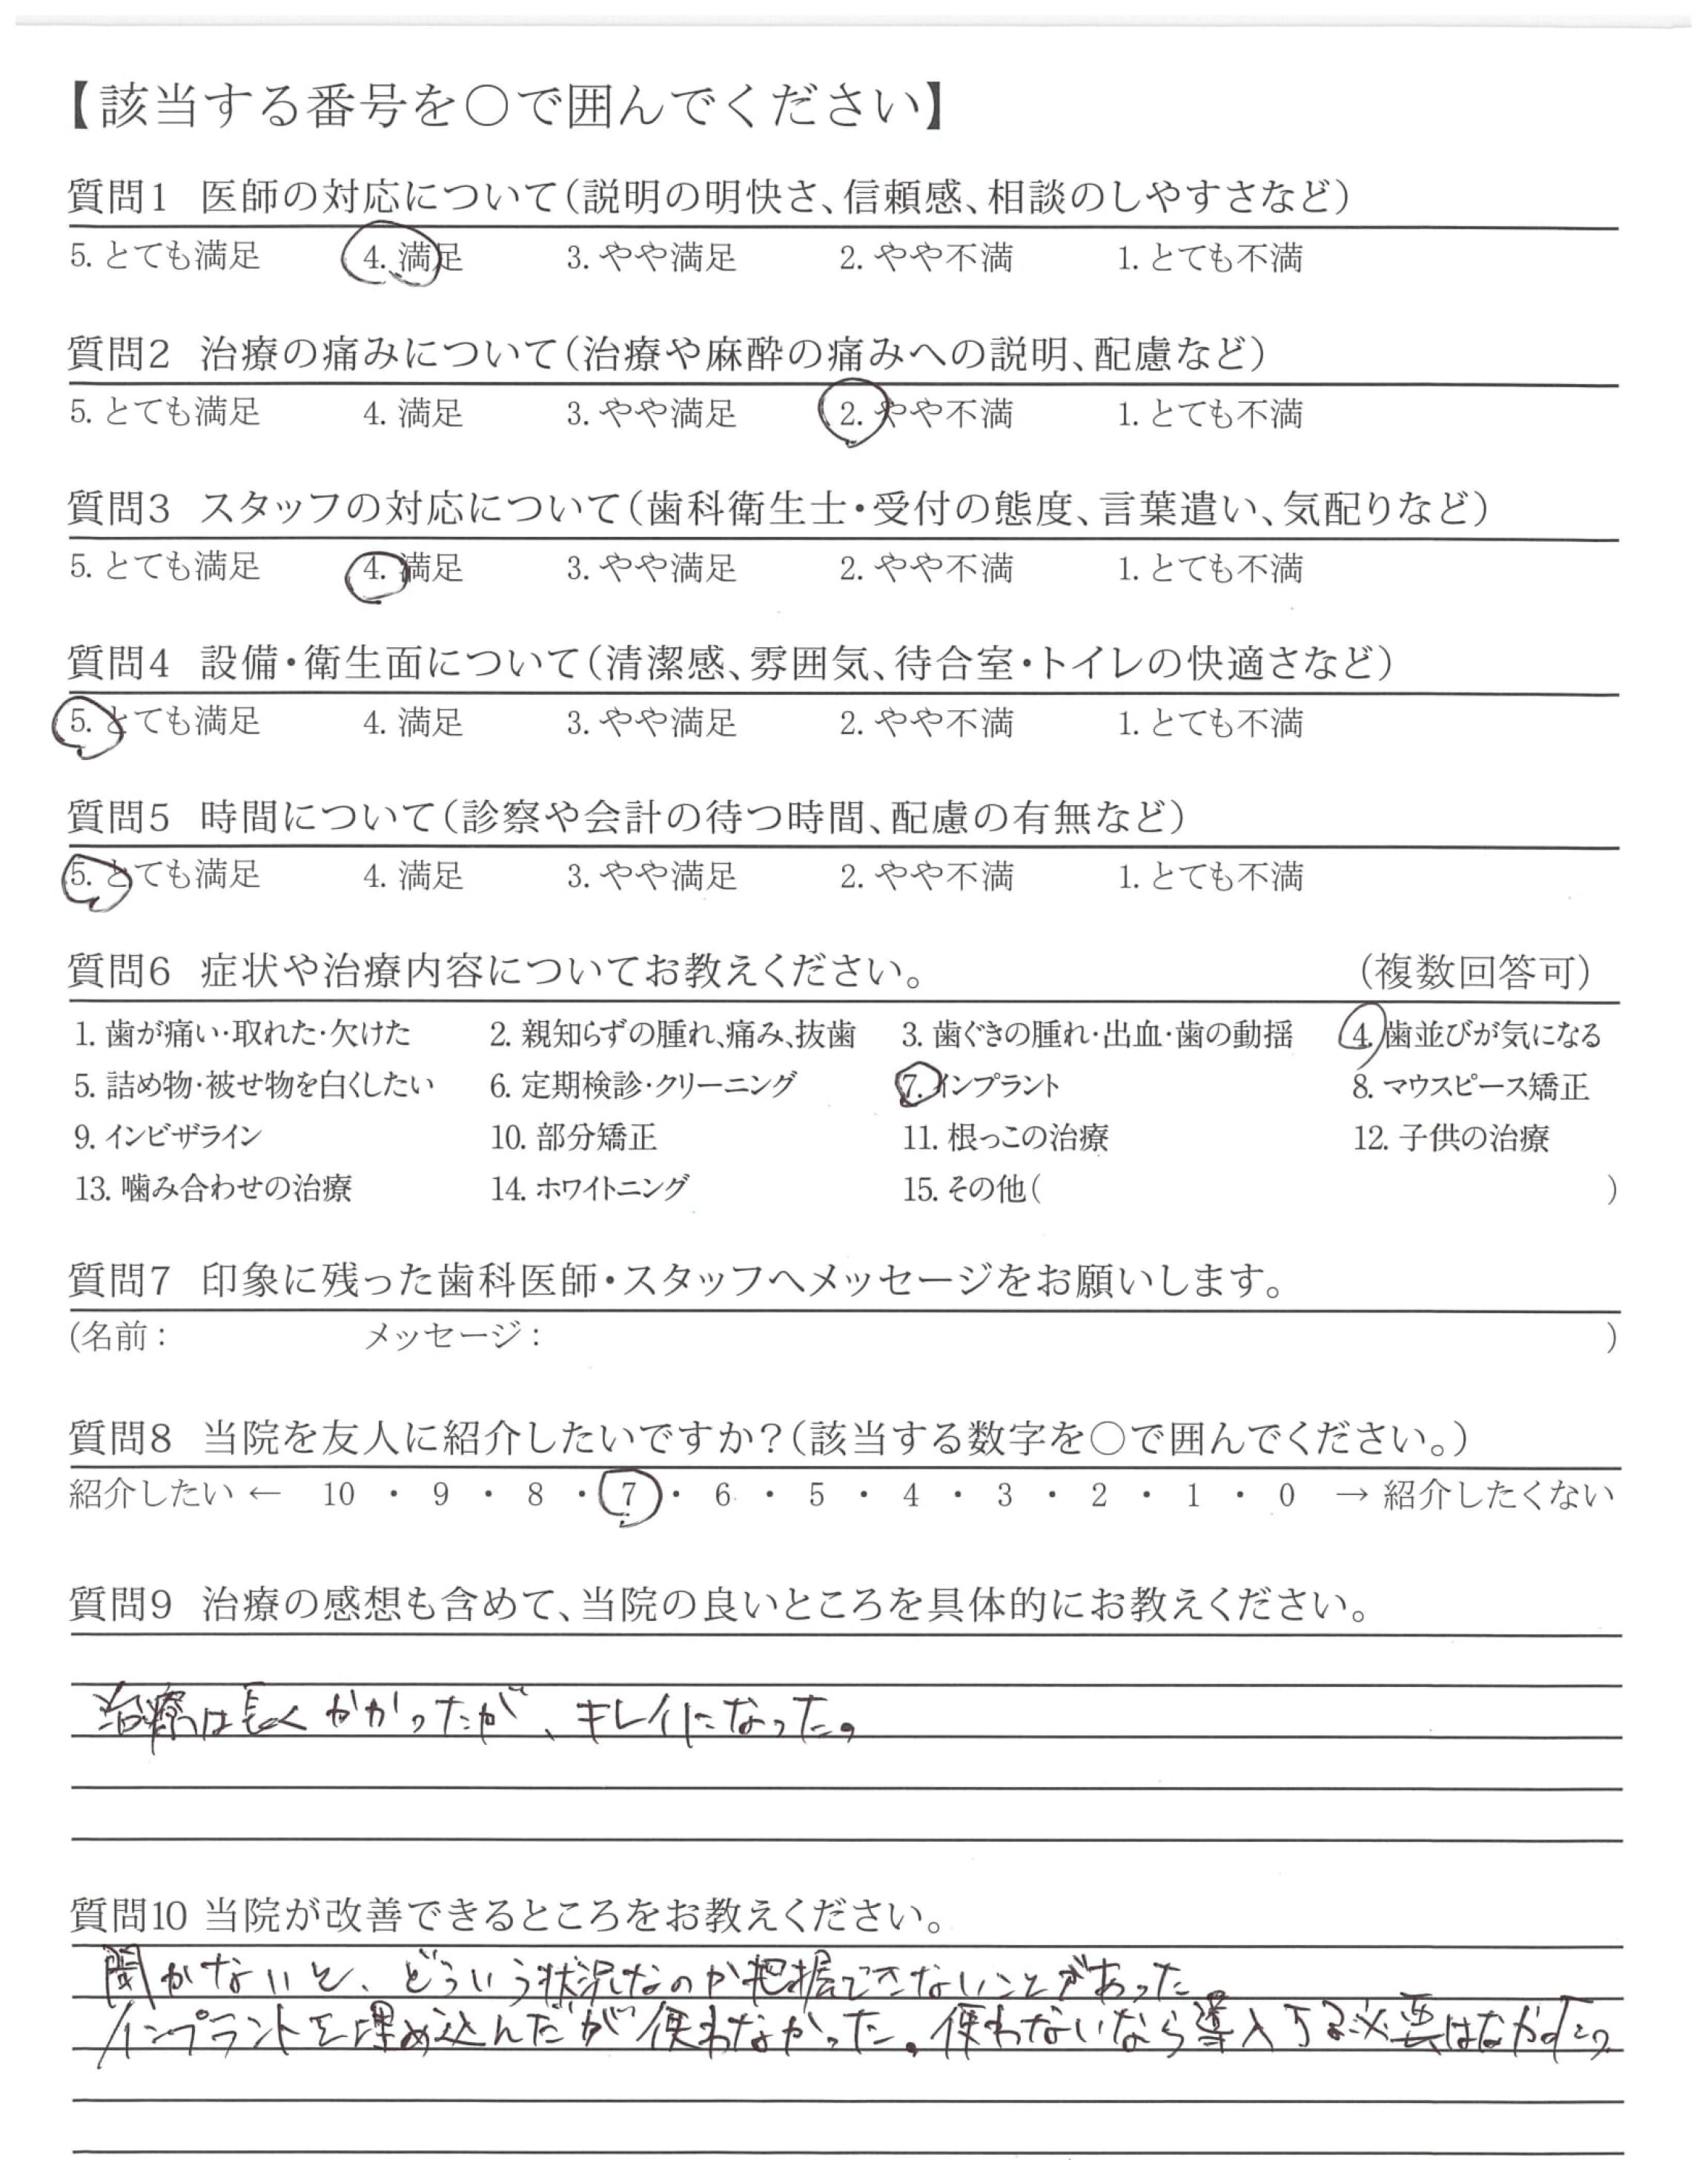 【該当する番号を〇で囲んでください】
質問1 医師の対応について(説明の明快さ、信頼感、相談のしやすさなど)
5. とても満足 4. 満足 3. やや満足 2. やや不満 1. とても不満
質問2 治療の痛みについて(治療や麻酔の痛みへの説明、配慮など)
5. とても満足 4. 満足 3. やや満足 2. やや不満 1. とても不満
質問3 スタッフの対応について(歯科衛生士・受付の態度、言葉遣い、気配りなど)
5. とても満足 4. 満足 3. やや満足 2. やや不満 1. とても不満
質問4 設備・衛生面について(清潔感、雰囲気、待合室・トイレの快適さなど)
5. とても満足 4. 満足 3. やや満足 2. やや不満 1. とても不満
質問5 時間について(診察や会計の待つ時間、配慮の有無など)
5. とても満足 4. 満足 3. やや満足 2. やや不満 1. とても不満
質問6 症状や治療内容についてお教えください。 (複数回答可)
1. 歯が痛い・取れた・欠けた 2. 親知らずの腫れ、痛み、抜歯 3. 歯ぐきの腫れ・出血・歯の動揺 4. 歯並びが気になる
5. 詰め物・被せ物を白くしたい 6. 定期検診・クリーニング 7. インプラント 8. マウスピース矯正
9. インビザライン 10. 部分矯正 11. 根っこの治療 12. 子供の治療
13. 噛み合わせの治療 14. ホワイトニング 15. その他( )
質問7 印象に残った歯科医師・スタッフへメッセージをお願いします。
(名前: メッセージ: )
質問8 当院を友人に紹介したいですか?(該当する数字を〇で囲んでください。)
紹介したい ← 10 ・ 9 ・ 8 ・ 7 ・ 6 ・ 5 ・ 4 ・ 3 ・ 2 ・ 1 ・ 0 → 紹介したくない
質問9 治療の感想も含めて、当院の良いところを具体的にお教えください。
治療は長くかかったが、キレイになった。
質問10 当院が改善できるところをお教えください。
聞かないと、どういう状況なのか把握できないことがあった
インプラントを埋め込んだが使わなかった。使わないなら導入する必要はなかった